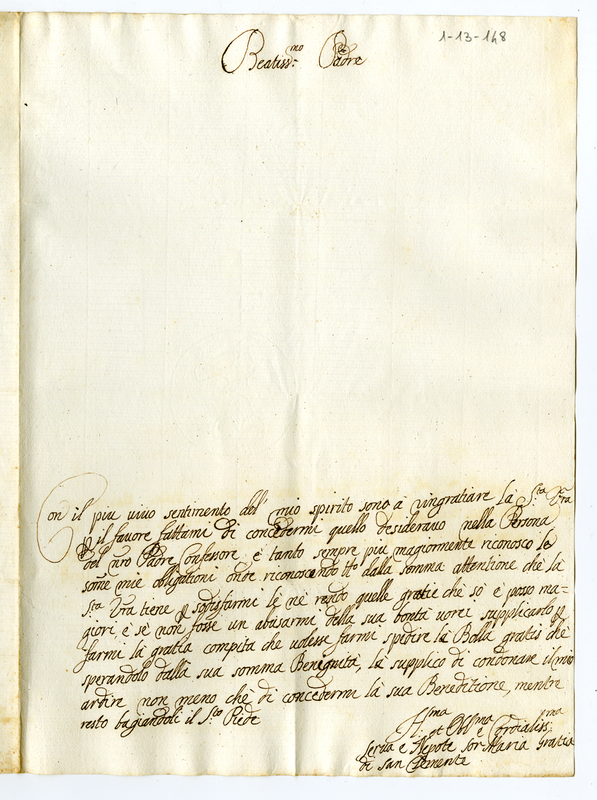 1-13-148
Beatiss.mo Padre
Con il piu viuo sentimento dell' mio spirito sono a ringratiare La S.ta Vra
p il fauore fattami di concedermi quello desiderauo nella Persona
del nro Padre Confessore e tanto sempre piu magiormente riconosco le
some mie obligationi onde riconoscendo tto dalla somma attentione che la
S.ta Vra tiene p sodisfarmi le ne rendo quelle gratie che sò e poso ma=
giori, e sè non fosse un abusarmi della sua bontà uorei supplicarlo p
farmi la gratia compita che uolesse farmi spedire la Bolla gratis che
sperandolo dalla sua somma Benignità, la supplico di condonare il mio
ardire non meno che di concedermi la sua Beneditione, mentre
resto bagiandoli il S.to Piede
Obl.ma e Cordialiss.ma
Serua e Nepote Sor Maria Gratia
di San Clemente